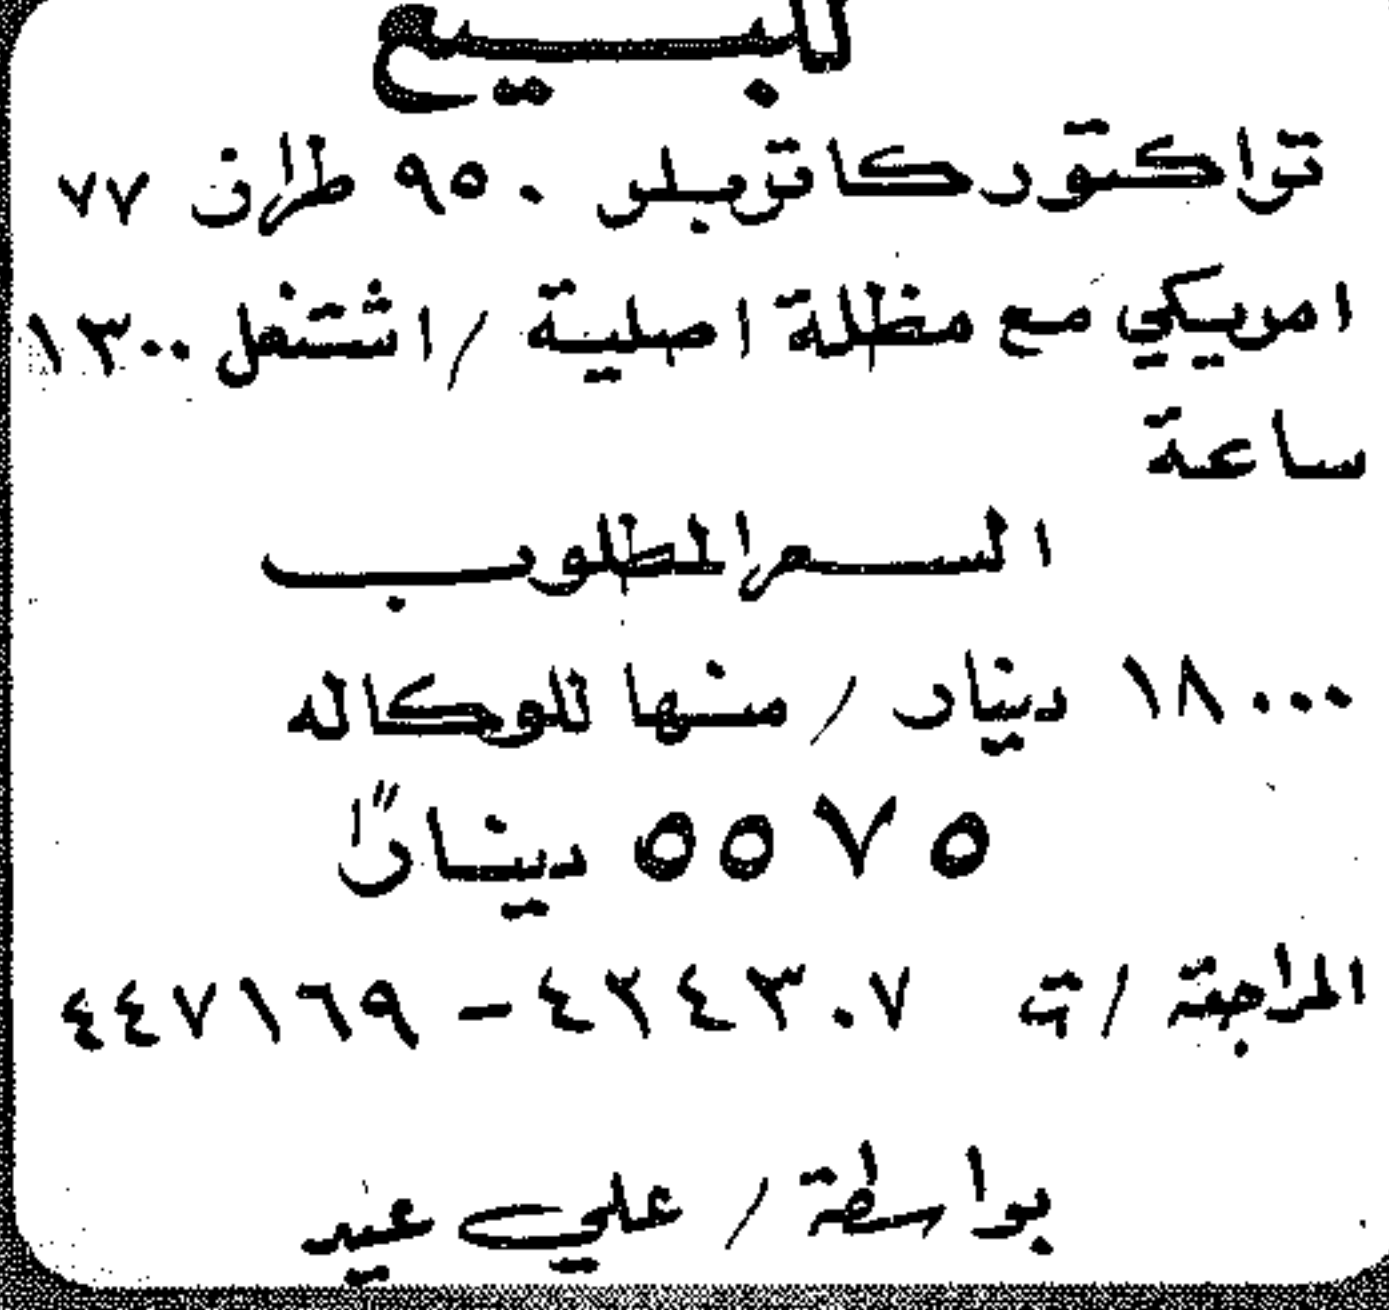 للبيع
تراكتور كاتربلر ٩٥٠ طراز ٧٧
امريكي مع مظلة اصلية / اشتغل ١٣٠٠
ساعة
السعر المطلوب
١٨٠٠٠ دينار / منها للوكاله
٥٥٧٥ ديناراً
المراجعة / ت ٤٢٤٣٠٧ - ٤٤٧١٦٩
بواسطة / علي عيد